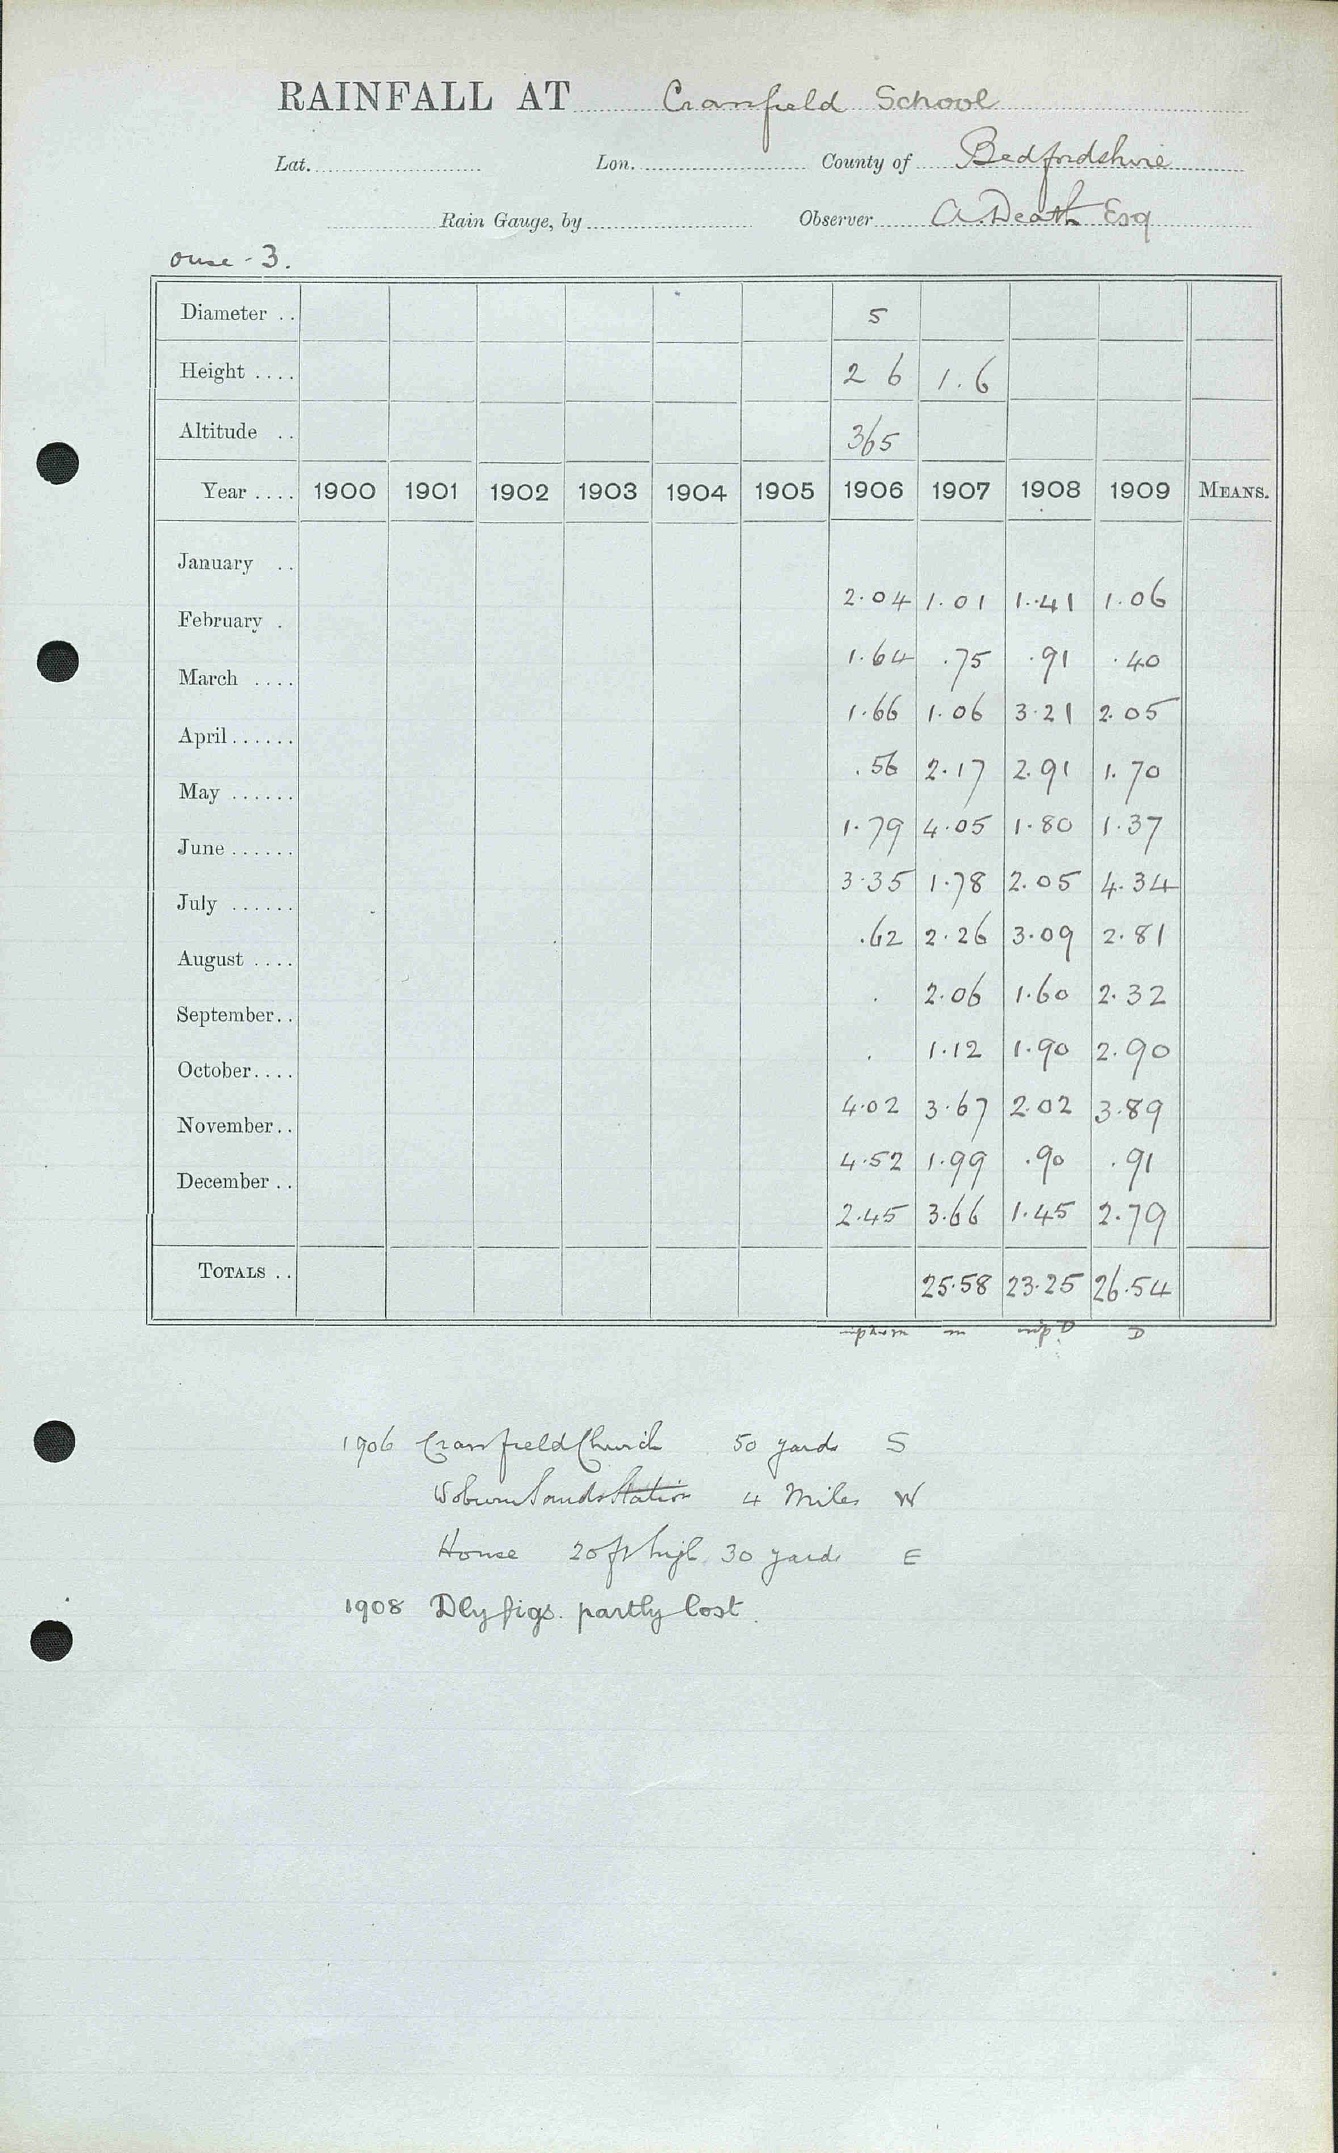 RAINFALL AT Cranfield School
Lat. Lon. County of Bedfordshire
Rain Gauge, by Observer A. Death Esq
Ouse - 3.
Diameter .. 5
Height .... 2 6 1.6
Altitude .. 365
Year .... 1900 1901 1902 1903 1904 1905 1906 1907 1908 1909 MEANS.
January .. 2.04 1.01 1.41 1.06
February . 1.64 .75 .91 .40
March .... 1.66 1.06 3.21 2.05
April ...... .56 2.17 2.91 1.70
May ...... 1.79 4.05 1.80 1.37
June ...... 3.35 1.78 2.05 4.34
July ...... .62 2.26 3.09 2.81
August .... . 2.06 1.60 2.32
September.. . 1.12 1.90 2.90
October.... 4.02 3.67 2.02 3.89
November.. 4.52 1.99 .90 .91
December .. 2.45 3.66 1.45 2.79
TOTALS .. 25.58 23.25 26.54
m D
1906 Cranfield Church 50 yards S
Woburn Sands Station 4 Miles W
House 20 ft high 30 yards E
1908 Dly figs. partly lost.